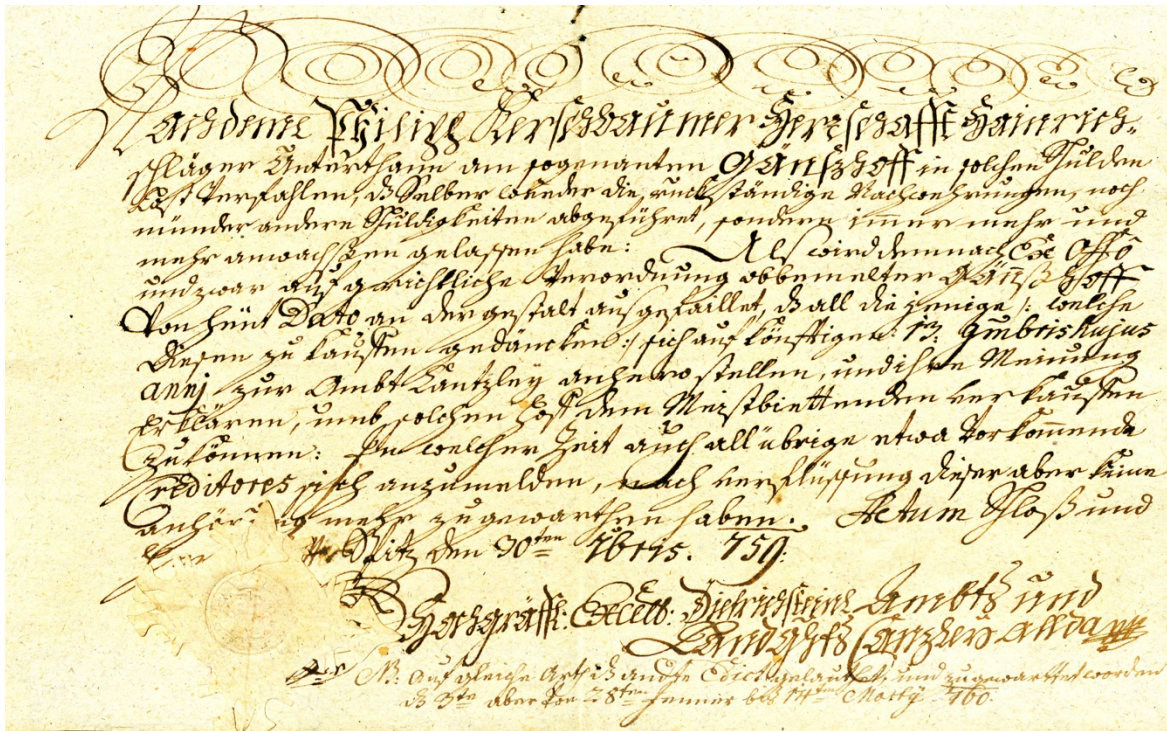 Nachdeme Philipp Kerschbaumer Herrschafft Hainrich-
schläger Unterthann am sogenanten Gänßhoff in solchen Schulden
Last Verfahlen, dß Selber weder die ruckständige Nachwehrungen, noch
münder andere Schuldigkeiten abgeführet, sondern immer mehr und
mehr anwachßen gelassen habe: Als wird demnach Ex Offo
und zwar auf grichtliche Verordnung obbemelter Gänßhoff
Von heut Dato an dergestalt ausgefaillet, dß all die jenige /: welche
diesen zu kauffen gedäncken :/ sich auf könfftigen 13: 9mbris hujus
annj zur Ambt Cantzley anhero stellen, und ihre Meinung
Erklären, umb solchen Hoff dem Meistbiettenden verkauffen
zu können: In welcher Zeit auch all übrige etwa Vorkomende
Creditores sich anzumelden, nach verflüssung dieser aber keine
anhörung mehr zugewarthen haben. Actum Schloß und
Spitz den 30ten 7bris. 759.
Hochgräffl: Excell: Dietrichsteinl Ambts und
Landghts Cantzley allda
NB: Auf gleiche Arth ist dß andte Edict gelauthet, und zugewarttet worden
dß 3te aber von 28ten Jenner bis 14ten Marty 760.